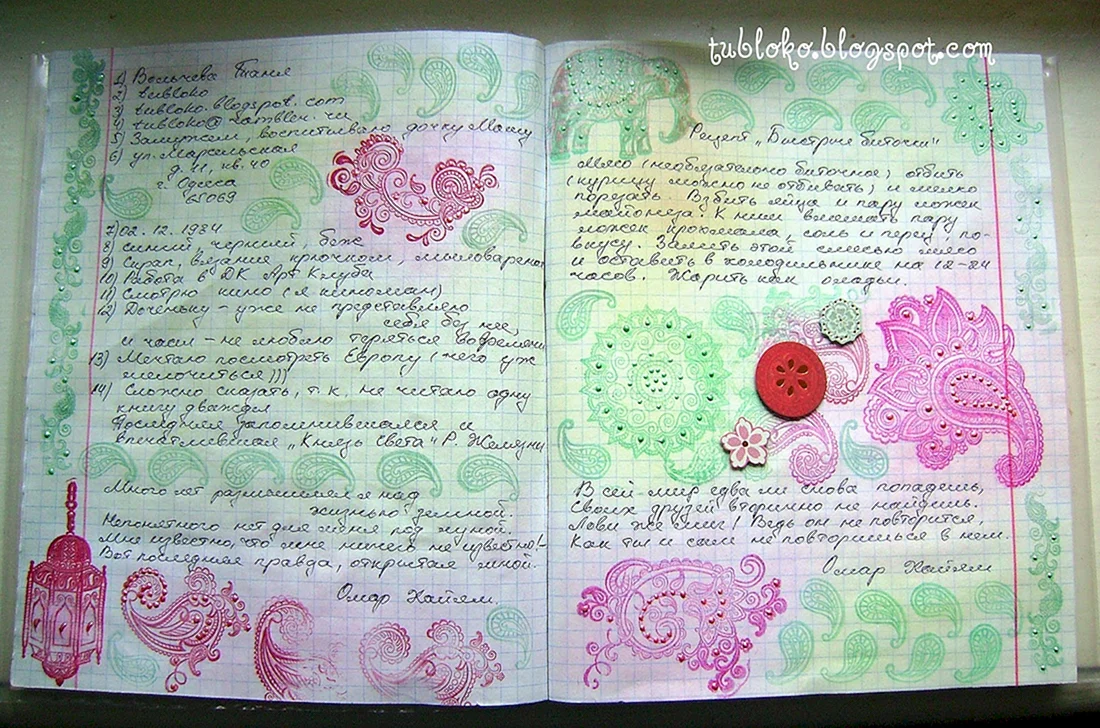 tubloko.blogspot.com
1) Вольчева Таня
2) tubloko
3) tubloko.blogspot.com
4) tubloko@rambler.ru
5) Замужем, воспитываю дочку Машу
6) ул. Марсельская
д. 11, кв. 40
г. Одесса
65069
7) 02.12.1984
8) синий, черний, беж
9) Скрап, вязание крючком, мыловарение
10) Работа в ДК Арт Клуба
11) Смотрю кино (я киноман)
12) Доченьку - уже не представляю
себя без нее,
и часы - не люблю теряться во времени
13) Мечтаю посмотреть Европу (чего уж
мелочиться)))
14) Сложно сказать, т.к. не читаю одну
книгу дважды
Последняя запомнившаяся и
впечатлившая „Князь Света" Р. Желязны
Много лет размышлял я над
жизнью земной.
Непонятного нет для меня под луной.
Мне известно, что мне ничего не известно! -
Вот последняя правда, открытая мной.
Омар Хайям.
Рецепт „Быстрые биточки"
Мясо (необязательно биточное) отбить
(курицу можно не отбивать) и мелко
порезать. Взбить яйца и пару ложек
майонеза. К ним вмешать пару
ложек крохмала, соль и перец, по-
вкусу. Залить этой смесью мясо
и оставить в холодильнике на 12-24
часов. Жарить как оладьи.
В сей мир едва ли снова попадешь,
Своих друзей вторично не найдешь.
Лови же миг! Ведь он не повторится,
Как ты и сам не повторишься в нем.
Омар Хайям